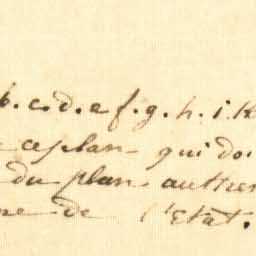 b. c. d. e f. g. h. i. K
ce plan qui doi
du plan authen
de l'Etat.